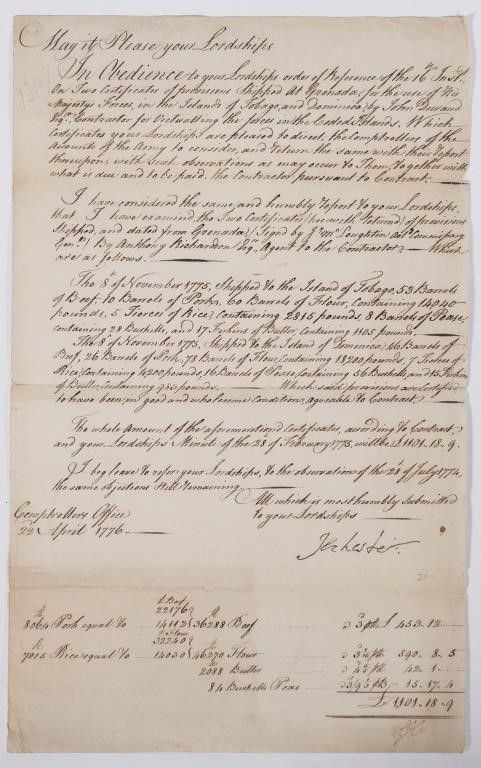 May it Please your Lordships
In Obedience to your Lordships order of Reference of the 16th Inst.
On Two Certificates of provisions Shipped At Grenada, for the use of His
Majestys Forces, in the Islands of Tobago, and Dominica, by John Durand
Esq. Contractor for Victualling the Forces in the Ceded Islands. Which
Certificates your Lordships are pleased to direct, the Comptrollers of the
Accounts of the Army to consider, and return the same with their Report
thereupon, with such observations as may occur to Them, together with
what is due and to be paid the Contractor pursuant to Contract.
I have considered the same, and humbly Report to your Lordships,
that I have examined, the Two Certificates (herewith returned) of provisions
Shipped, and dated from Grenada, Signed by Jno. McLoughlin Act. Commissary
Genl. By Anthony Richardson Esq. Agent to the Contractor Which
are as follows.
The 8th of November 1775, Shipped to the Island of Tobago, 53 Barrels
of Beef, 10 Barrels of Pork, 60 Barrels of Flour, Containing 14,040
pounds, 5 Tierces of Rice, containing 2815 pounds, 8 Barrels of Pease,
containing 28 Bushells, and 17 Firkins of Butter, Containing 1105 pounds.
The 8th of November 1775, Shipped to the Island of Dominica, 46 Barrels of
Beef, 26 Barrels of Pork, 78 Barrels of Flour, Containing 18200 pounds, 7 Tierces of
Rice, Containing 4200 pounds, 16 Barrels of Pease, Containing 56 Bushells, and 15 Firkins
of Butter, Containing 983 pounds. Which said provisions are Certified
to have been, in good and wholesome Condition, agreeable to Contract.
The whole Amount of the aforementioned Certificates, according to Contract
and your Lordships Minute of the 28 of February 1775, will be £1101.18.9.
I beg leave to refer your Lordships, to the observation of the 28th of July 1774,
the same objections still remaining.
All which is most humbly Submitted
to your Lordships
Comptrollers Office
22 April 1776
lb Beef
22176
8064 Pork equal to 14112 36288 Beef a 3 p lb £ 453.12
lb Flour
32240
7015 Rice equal to 14030 46270 Flour 590.8.5
2088 Butter 42.1
84 Bushells Peas 15.17.4
£1,101.18.9